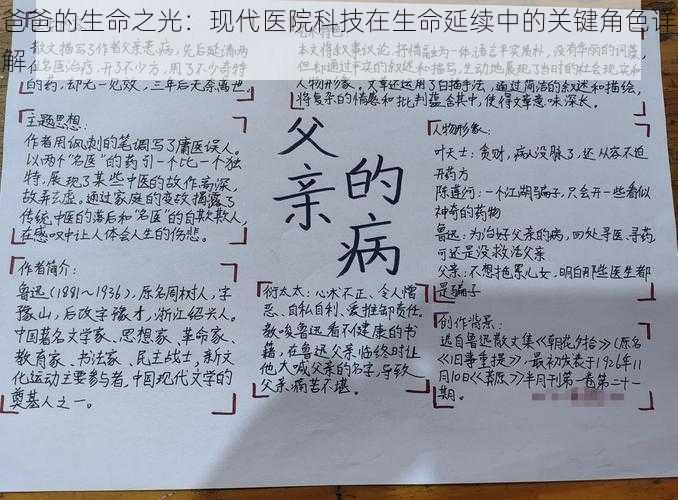 爸爸的生命之光：现代医院科技在生命延续中的关键角色详
解
散文描写了作者父亲患病，先后延请两
名医治疗，开了不少方，用了不少奇特
的药，却无一见效，三年后无奈离世。
本文将叙事议论，抒情融为一体，语言平实质朴，没有华丽的词藻，
但却通过平实的叙述和描写，生动地展现了当时的社会现实和
人物形象。文章还运用了白描手法，通过简洁的叙述和描绘，
将复杂的情感和批判蕴含其中，使得文章意味深长。
主题思想：
作者用讽刺的笔调写了庸医误人。
以两个“名医”的药引一个比一个独
特，展现了某些中医的故作高深，
故弄玄虚。通过家庭的变故揭露了
传统中医的落后和“名医”的自欺欺人，
在感叹中让人体会人生的伤悲。
作者简介：
鲁迅(1881~1936)，原名周树人，字
豫山，后改字豫才，浙江绍兴人。
中国著名文学家、思想家、革命家、
教育家、书法家、民主战士，新文
化运动主要参与者，中国现代文学的
奠基人之一。
父亲
的病
衍太太：心术不正、令人憎
恶、自私自利、爱推卸责任。
教唆鲁迅看不健康的书
籍，在鲁迅父亲临终时让
他大喊父亲的名字，导致
父亲痛苦不堪。
人物形象：
叶天士：贪财，病人没脉了，还从容不迫
开药方
陈莲河：一个江湖骗子，只会开一些看似
神奇的药物
鲁迅：为治好父亲的病，四处寻医、寻药，
可还是没救活父亲
父亲：不想拖累儿女，明白那些医生都
是骗子
创作背景：
选自鲁迅散文集《朝花夕拾》（原名
《旧事重提》），最初发表于1926年11
月10日《莽原》半月刊第一卷第二十一
期。